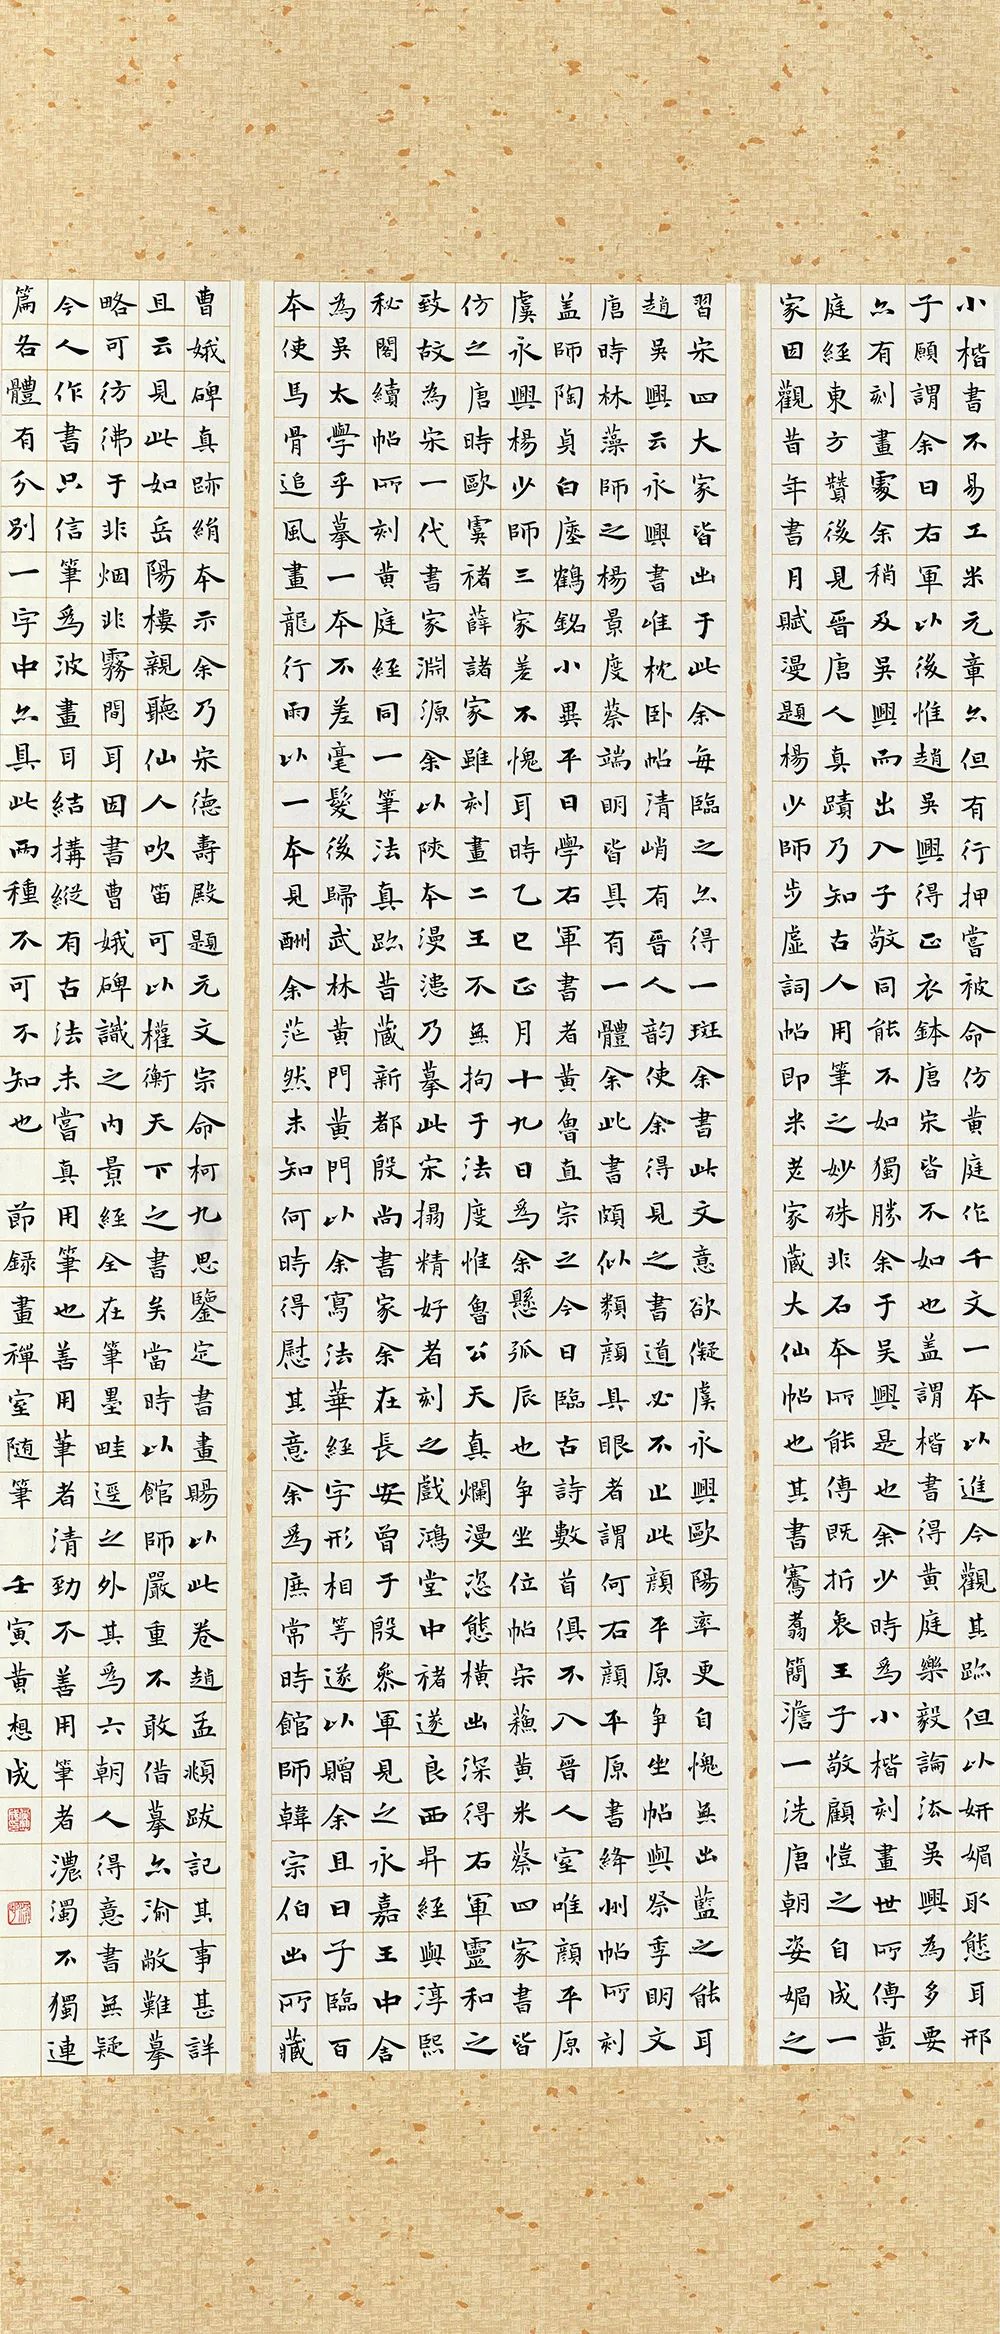 小楷書不易工米元章亦但有行押嘗被命仿黃庭作千文一本以進今觀其跡但以妍媚取態耳邢
子願謂余曰右軍以後惟趙吳興得正衣鉢唐宋皆不如也蓋謂楷書得黃庭樂毅論法吳興為多要
亦有刻畫處余稍及吳興而出入子敬同能不如獨勝余于吳興是也余少時為小楷刻畫世所傳黃
庭經東方贊後見晉唐人真蹟乃知古人用筆之妙殊非石本所能傳既折衷王子敬顧愷之自成一
家因觀昔年書月賦漫題楊少師步虛詞帖即米老家藏大仙帖也其書騫翥簡澹一洗唐朝姿媚之
習宋四大家皆出于此余每臨之亦得一斑余書此文意欲儗虞永興歐陽率更自愧無出藍之能耳
趙吳興云永興書唯枕臥帖清峭有晉人韻使余得見之書道必不止此顏平原爭坐帖與祭季明文
唐時林藻師之楊景度蔡端明皆具有一體余此書頗似類顏具眼者謂何右顏平原書絳州帖所刻
蓋師陶貞白廛鶴銘小異平日學右軍書者黃魯直宗之今日臨古詩數首俱不入晉人室唯顏平原
虞永興楊少師三家差不愧耳時乙巳正月十九日為余懸弧辰也爭坐位帖宋蘇黃米蔡四家書皆
仿之唐時歐虞褚薛諸家雖刻畫二王不無拘于法度惟魯公天真爛漫恣態橫出深得右軍靈和之
致故為宋一代書家淵源余以陝本漫漶乃摹此宋搨精好者刻之戲鴻堂中褚遂良西昇經與淳熙
秘閣續帖所刻黃庭經同一筆法真跡昔藏新都殷尚書家余在長安曾于殷參軍見之永嘉王中舍
為吳太學乎摹一本不差毫髮後歸武林黃門黃門以余寫法華經字形相等遂以贈余且曰子臨百
本使馬骨追風畫龍行雨以一本見酬余茫然未知何時得慰其意余為庶常時館師韓宗伯出所藏
曹娥碑真跡絹本示余乃宋德壽殿題元文宗命柯九思鑒定書畫賜以此卷趙孟頫跋記其事甚詳
且云見此如岳陽樓親聽仙人吹笛可以權衡天下之書矣當時以館師嚴重不敢借摹亦渝敝難摹
略可彷彿于非烟非霧間耳因書曹娥碑識之內景經全在筆墨畦逕之外其為六朝人得意書無疑
今人作書只信筆為波畫耳結搆縱有古法未嘗真用筆也善用筆者清勁不善用筆者濃濁不獨連
篇各體有分別一字中亦具此兩種不可不知也 節錄畫禪室隨筆 壬寅黃想成